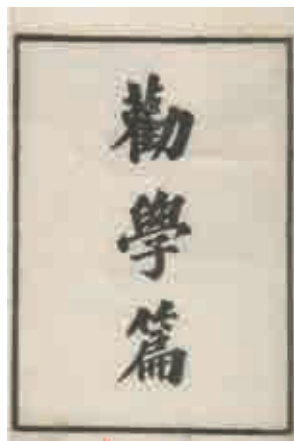 勸學篇